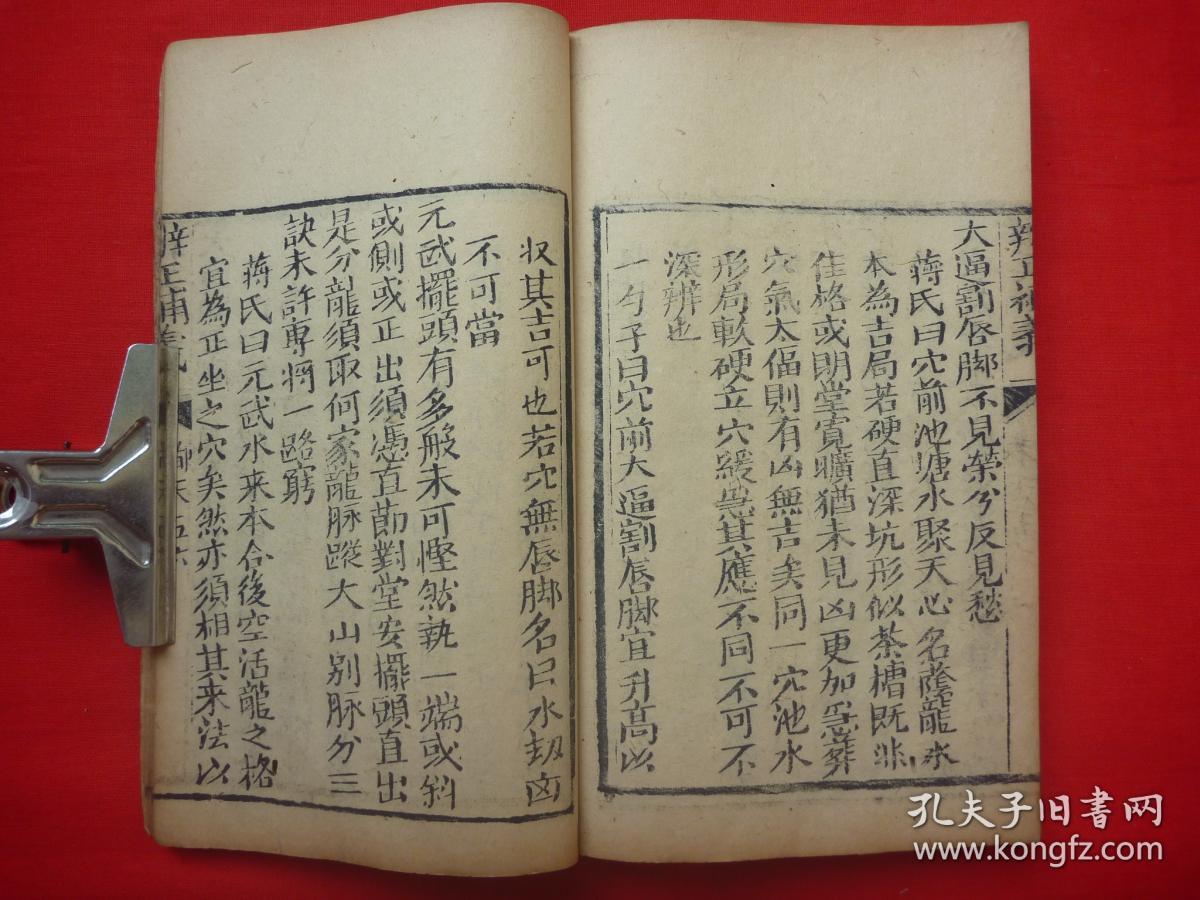 大逼割唇脚不見榮兮反見愁
蔣氏曰穴前池塘水聚天心名蔭龍水
本為吉局若硬直深坑形似茶槽既非
佳格或明堂寬曠猶未見凶更加急葬
穴氣太偪則有凶無吉矣同一穴池水
形局軟硬立穴緩急其應不同不可不
深辨也
一勺子曰穴前大逼割唇脚宜升高以
収其吉可也若穴無唇脚名曰水刼凶
不可當
元武擺頭有多般未可慳然執一端或斜
或側或正出須憑直節對堂安擺頭直出
是分龍須取何家龍脉蹤大山别脉分三
訣未許專將一路窮
蔣氏曰元武水来本合後空活龍之格
宜為正坐之穴矣然亦須相其来法以
辨正補義
辨正補義
孔夫子旧書网
www.kongfz.com